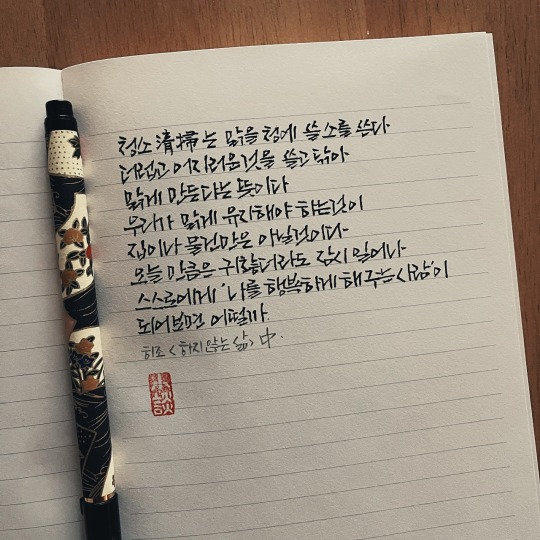 청소 清掃 는 맑을 청에 쓸 소를 쓴다
더럽고 어지러운것을 쓸고 닦아
맑게 만든다는 뜻이다
우리가 맑게 유지해야 하는것이
집이나 물건만은 아닐것이다
오늘 만큼은 귀찮더라도 잠시 일어나
스스로에게 '나를 행복하게 해주는 사람'이
되어보면 어떨까.
히조 <하지 않는 삶> 中.